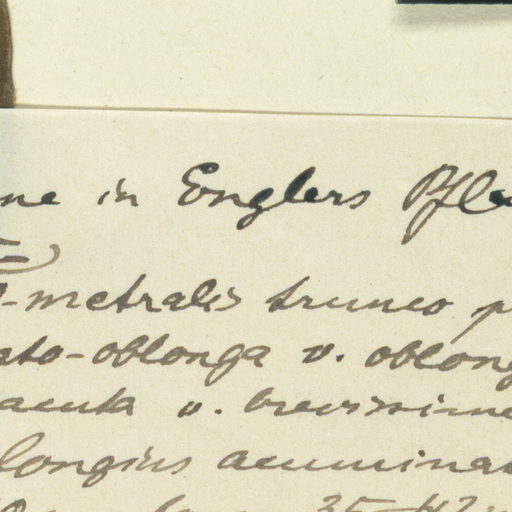 ne in Englers Pfle
-metralis trunco p
ato-oblonga v. oblong
acuta v. brevissime
longius acuminat
35-42